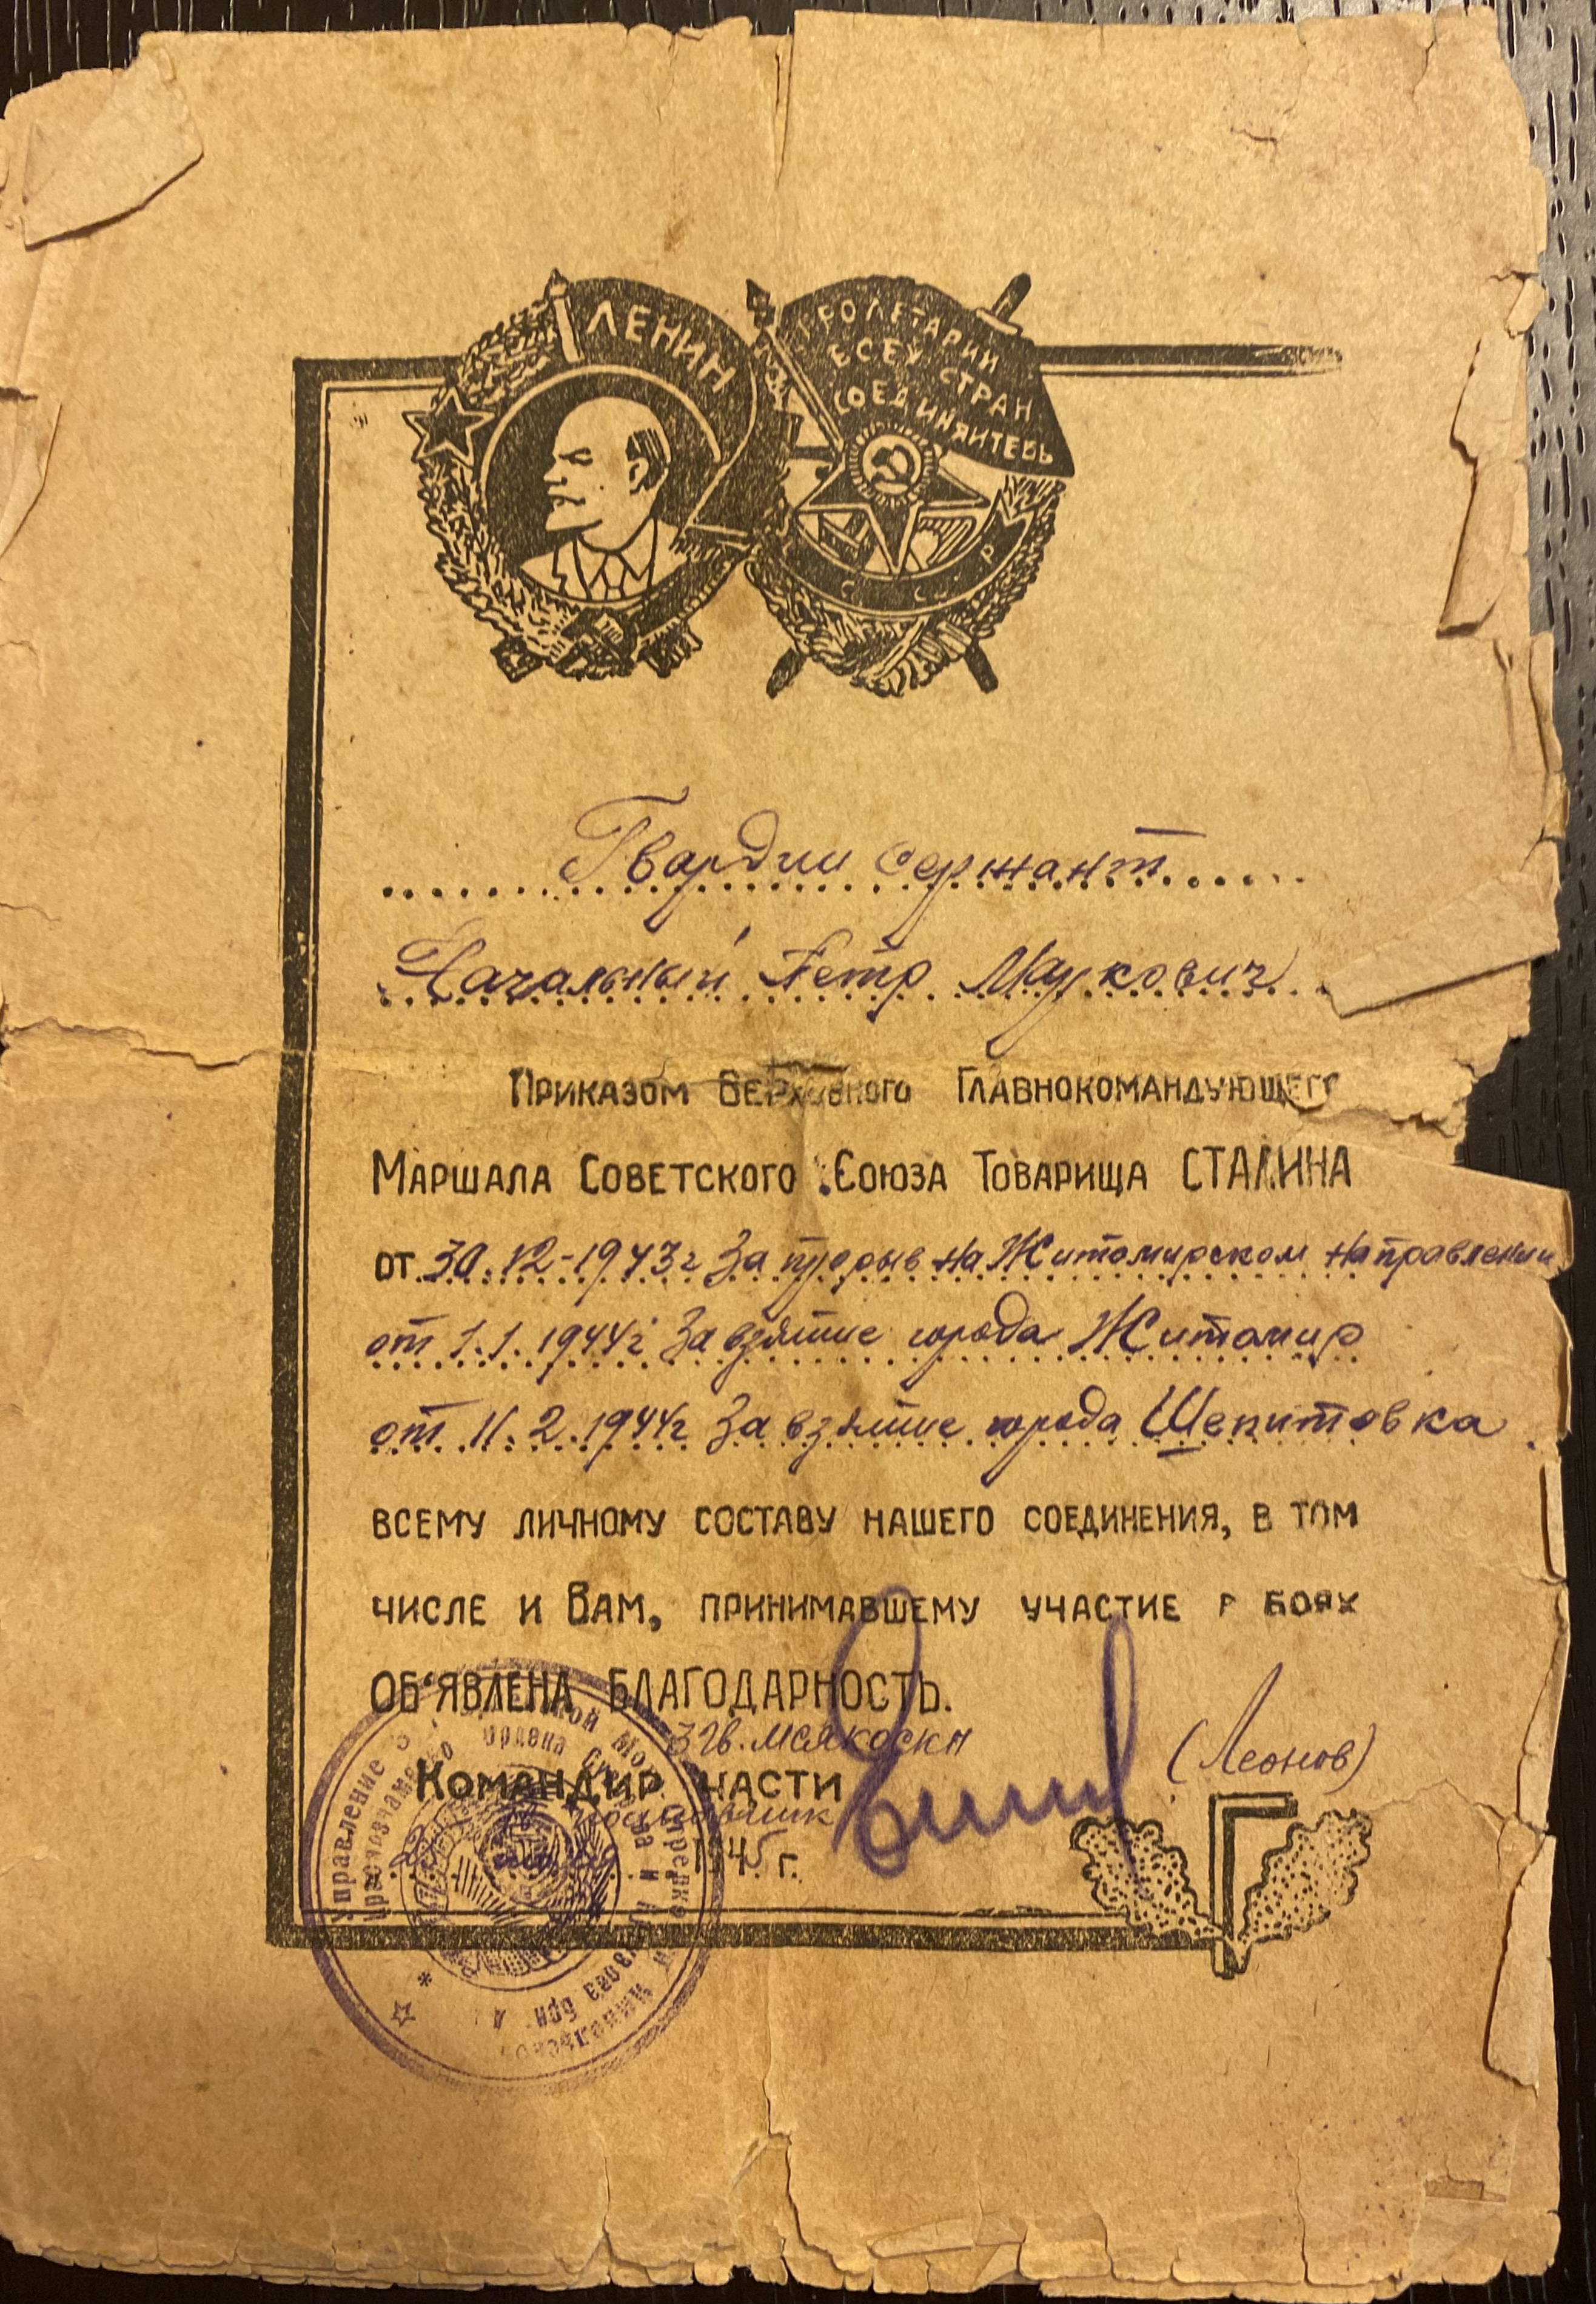 ЛЕНИН
ПРОЛЕТАРИИ
ВСЕХ СТРАН
СОЕДИНЯЙТЕСЬ
С С С Р
Гвардии сержант
Начальный Петр Маркович
Приказом Верховного Главнокомандующего
Маршала Советского Союза Товарища СТАЛИНА
от 30.12-1943г За прорыв на Житомирском направлении
от 1.1.1944г За взятие города Житомир
от 11.2.1944г За взятие города Шепитовка
всему личному составу нашего соединения, в том
числе и Вам, принимавшему участие в боях
ОБ'ЯВЛЕНА БЛАГОДАРНОСТЬ.
3 гв.
Командир части
(Леонов)
1945 г.
Управление
Краснознаменно ордена